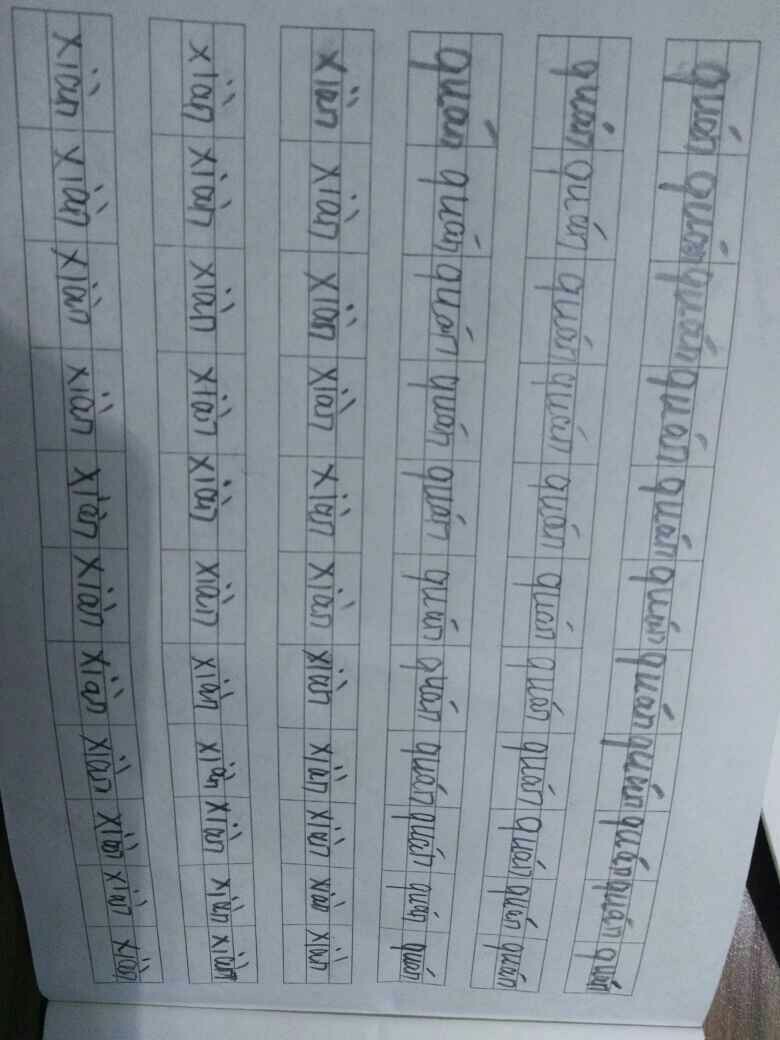 quán quán quán quán quán quán quán quán quán quán quán
quán quán quán quán quán quán quán quán quán quán quán
quán quán quán quán quán quán quán quán quán quán quán
xiàn xiàn xiàn xiàn xiàn xiàn xiàn xiàn xiàn xiàn xiàn
xiàn xiàn xiàn xiàn xiàn xiàn xiàn xiàn xiàn xiàn xiàn
xiàn xiàn xiàn xiàn xiàn xiàn xiàn xiàn xiàn xiàn xiàn